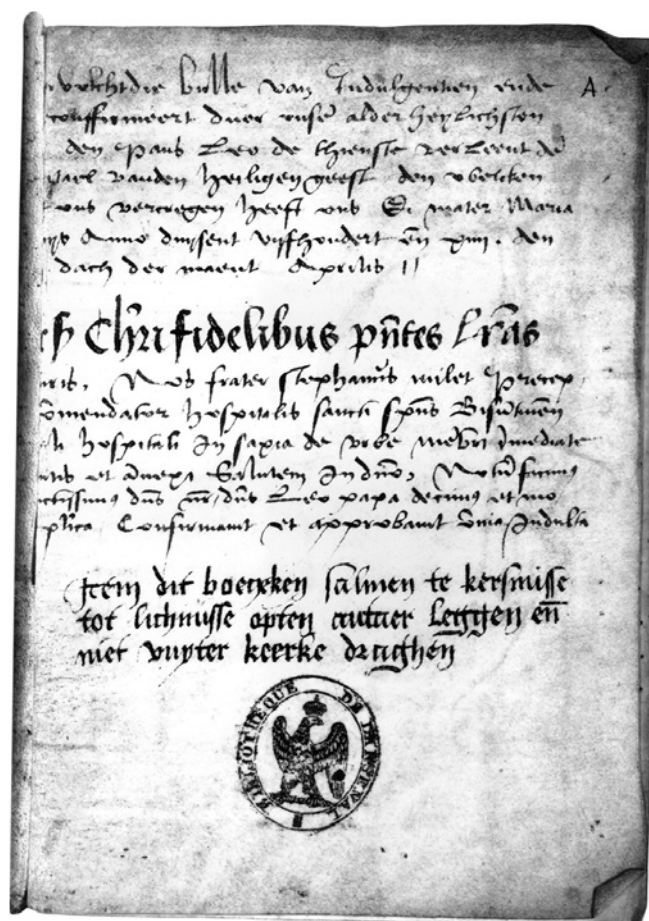 volchtdie bulle van Indulgentien ende A
confirmeert duer onse alder heylichsten
den Paus Leo de thienste verleent de
vanden heiligen geest den welcken
ons vercregen heeft ons Er mater Maria
Anno duysent vijfhondert en xiiii. den
dach der maent Aprilis
Chri fidelibus pntes lras
Nos frater stephanus milet precep
omendator hospitalis sancti spus Bisutinen
hospitali In saxia de vrbe mebri imediate
et anexi Salutem In dno, Notu facimus
ctissimus dns nr, dns Leo papa decimus et mo
plica Confirmauit et approbauit omia Indulta
Item dit boecxken salmen te kersmisse
tot lichmisse opten autaer leggen en
niet vuyter keerke draghen
BIBLIOTHEQUE DE L'ARSENAL